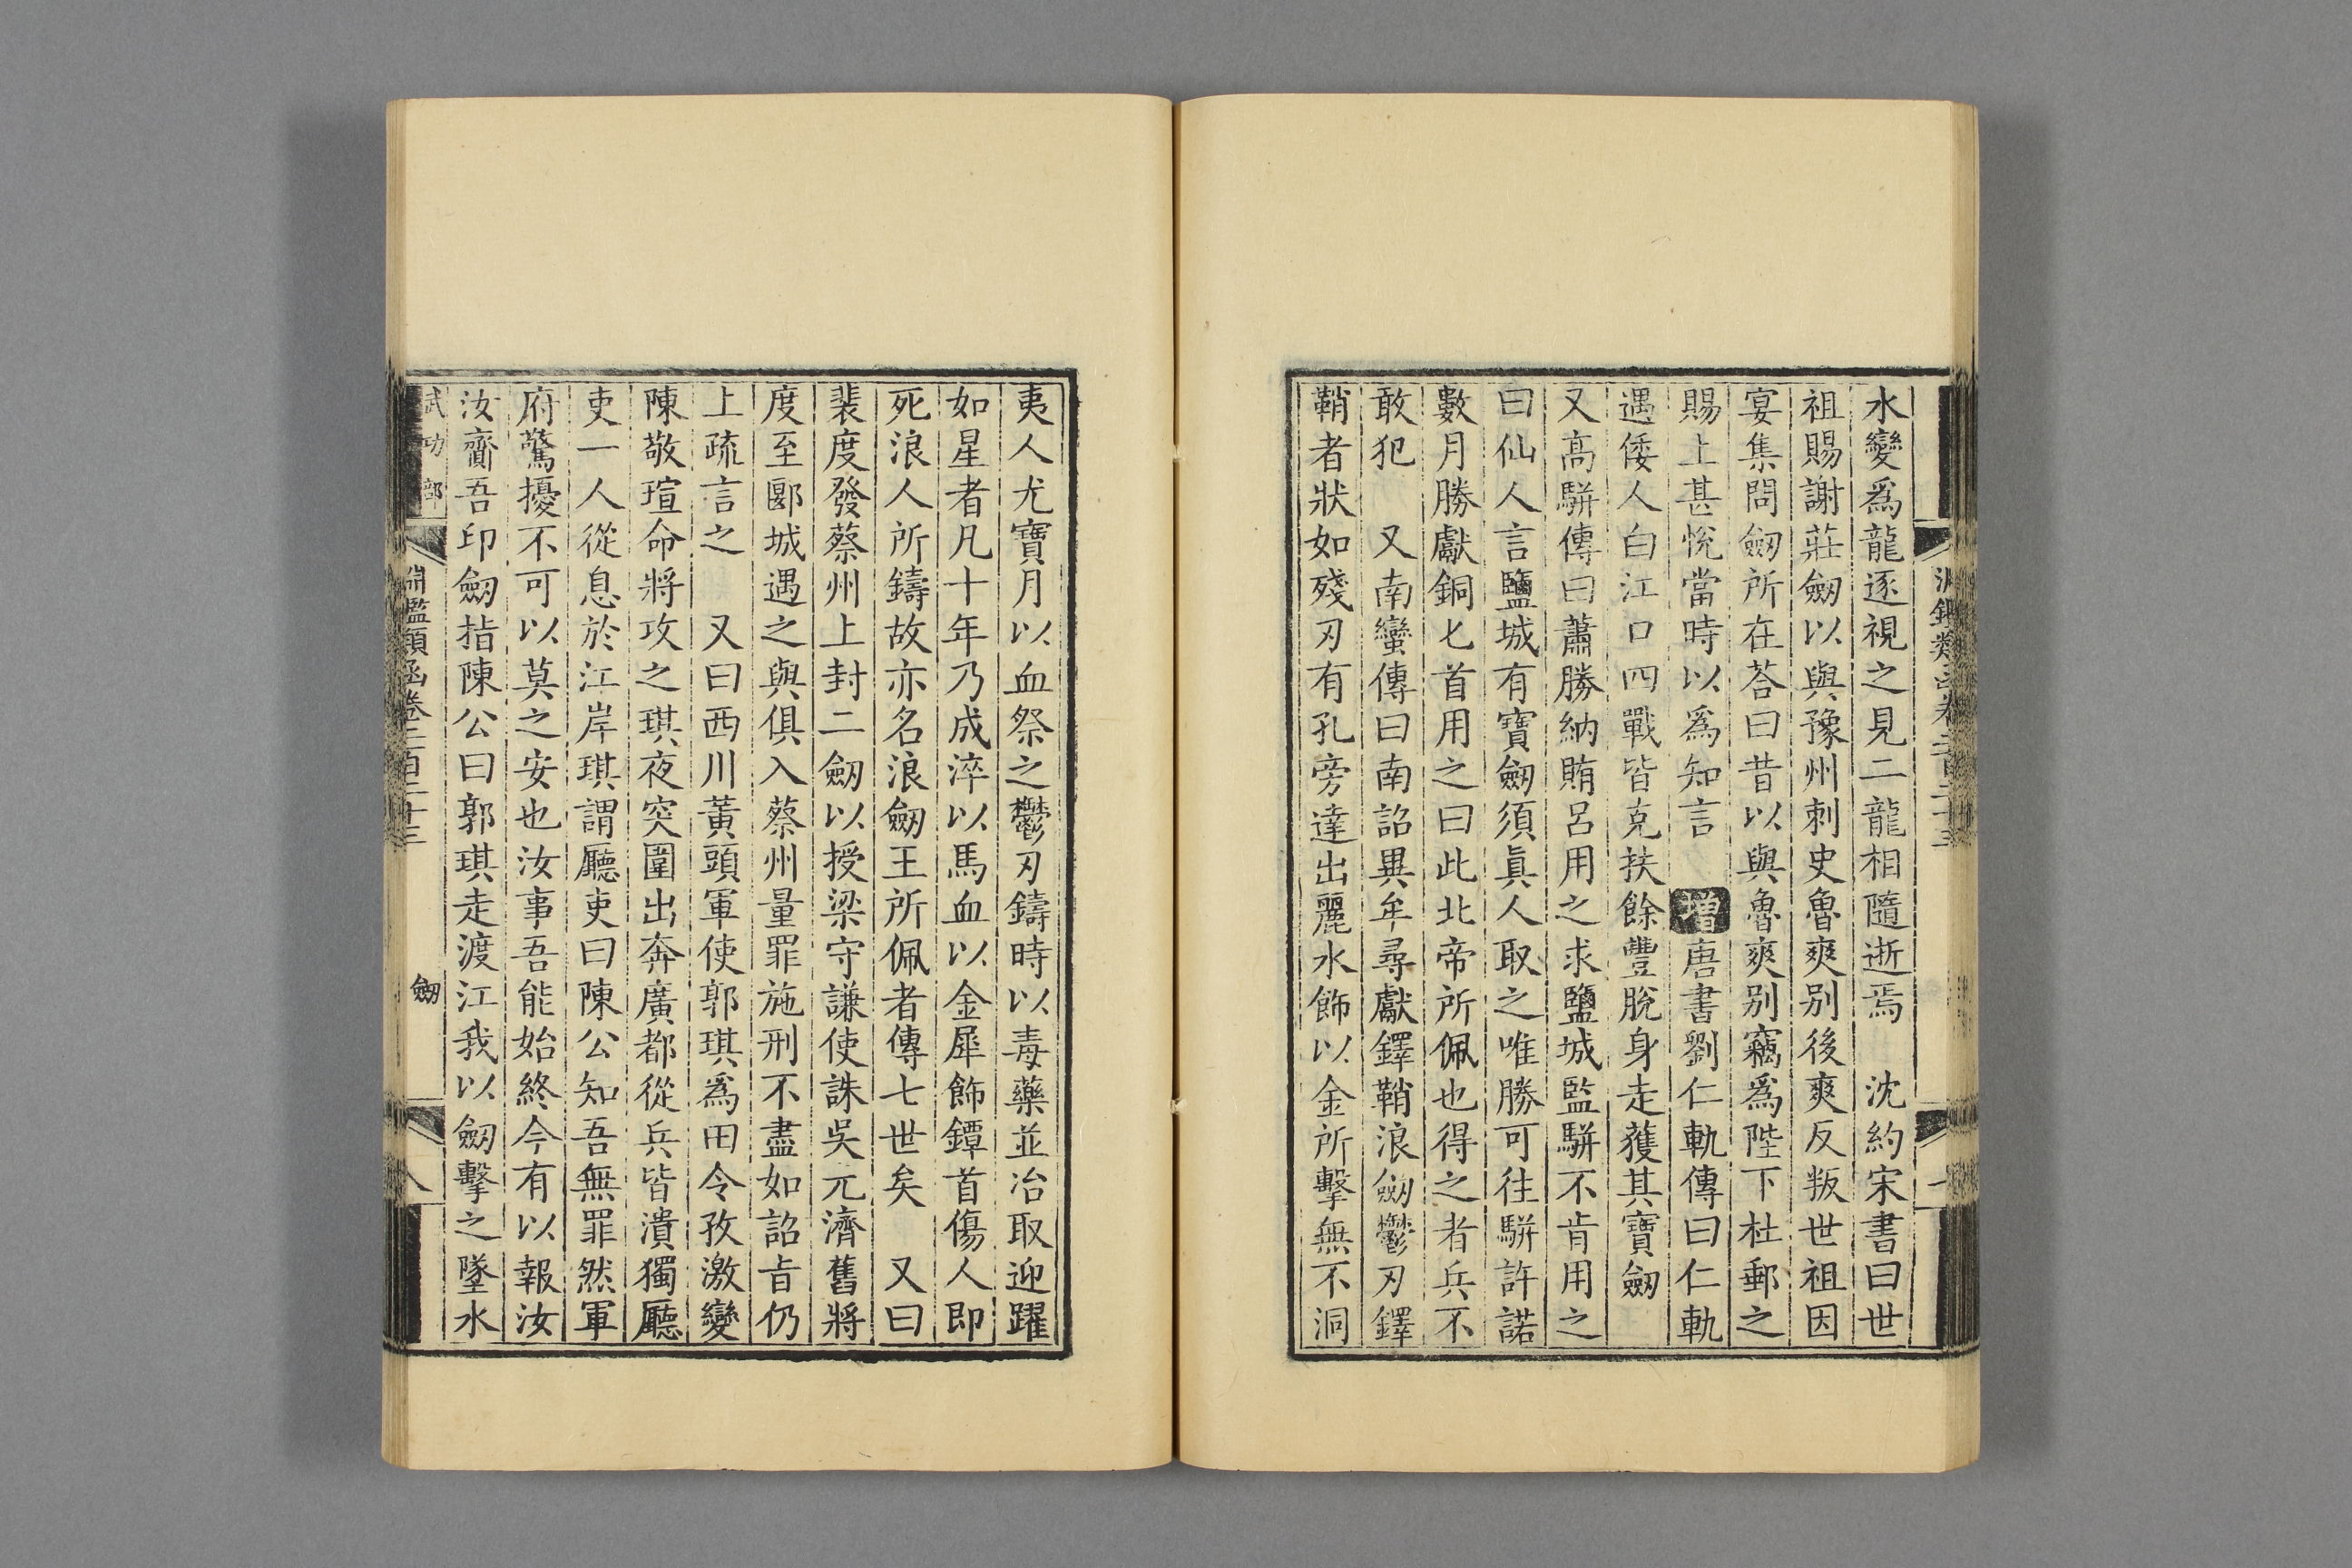 水變爲龍逐視之見二龍相隨逝焉　沈約宋書曰世
祖賜謝莊劒以與豫州刺史魯爽别後爽反叛世祖因
宴集問劒所在荅曰昔以與魯爽别竊爲陛下杜郵之
賜上甚悅當時以爲知言　增唐書劉仁軌傳曰仁軌
遇倭人白江口四戰皆克扶餘豐脫身走獲其寶劒
又高駢傳曰蕭勝納賄呂用之求鹽城監駢不肯用之
曰仙人言鹽城有寶劒須眞人取之唯勝可往駢許諾
數月勝獻銅匕首用之曰此北帝所佩也得之者兵不
敢犯　又南蠻傳曰南詔異牟尋獻鐸鞘浪劒鬱刃鐸
鞘者狀如殘刃有孔旁達出麗水飾以金所擊無不洞
夷人尤寶月以血祭之鬱刃鑄時以毒藥並冶取迎躍
如星者凡十年乃成淬以馬血以金犀飾鐔首傷人即
死浪人所鑄故亦名浪劒王所佩者傳七世矣　又曰
裴度發蔡州上封二劒以授梁守謙使誅吳元濟舊將
度至郾城遇之與俱入蔡州量罪施刑不盡如詔旨仍
上疏言之　又曰西川黃頭軍使郭琪爲田令孜激變
陳敬瑄命將攻之琪夜突圍出奔廣都從兵皆潰獨廳
吏一人從息於江岸琪謂廳吏曰陳公知吾無罪然軍
府驚擾不可以莫之安也汝事吾能始終今有以報汝
汝齎吾印劒指陳公曰郭琪走渡江我以劒擊之墜水
武功部
淵鑑類函卷二百二十三
劒
八